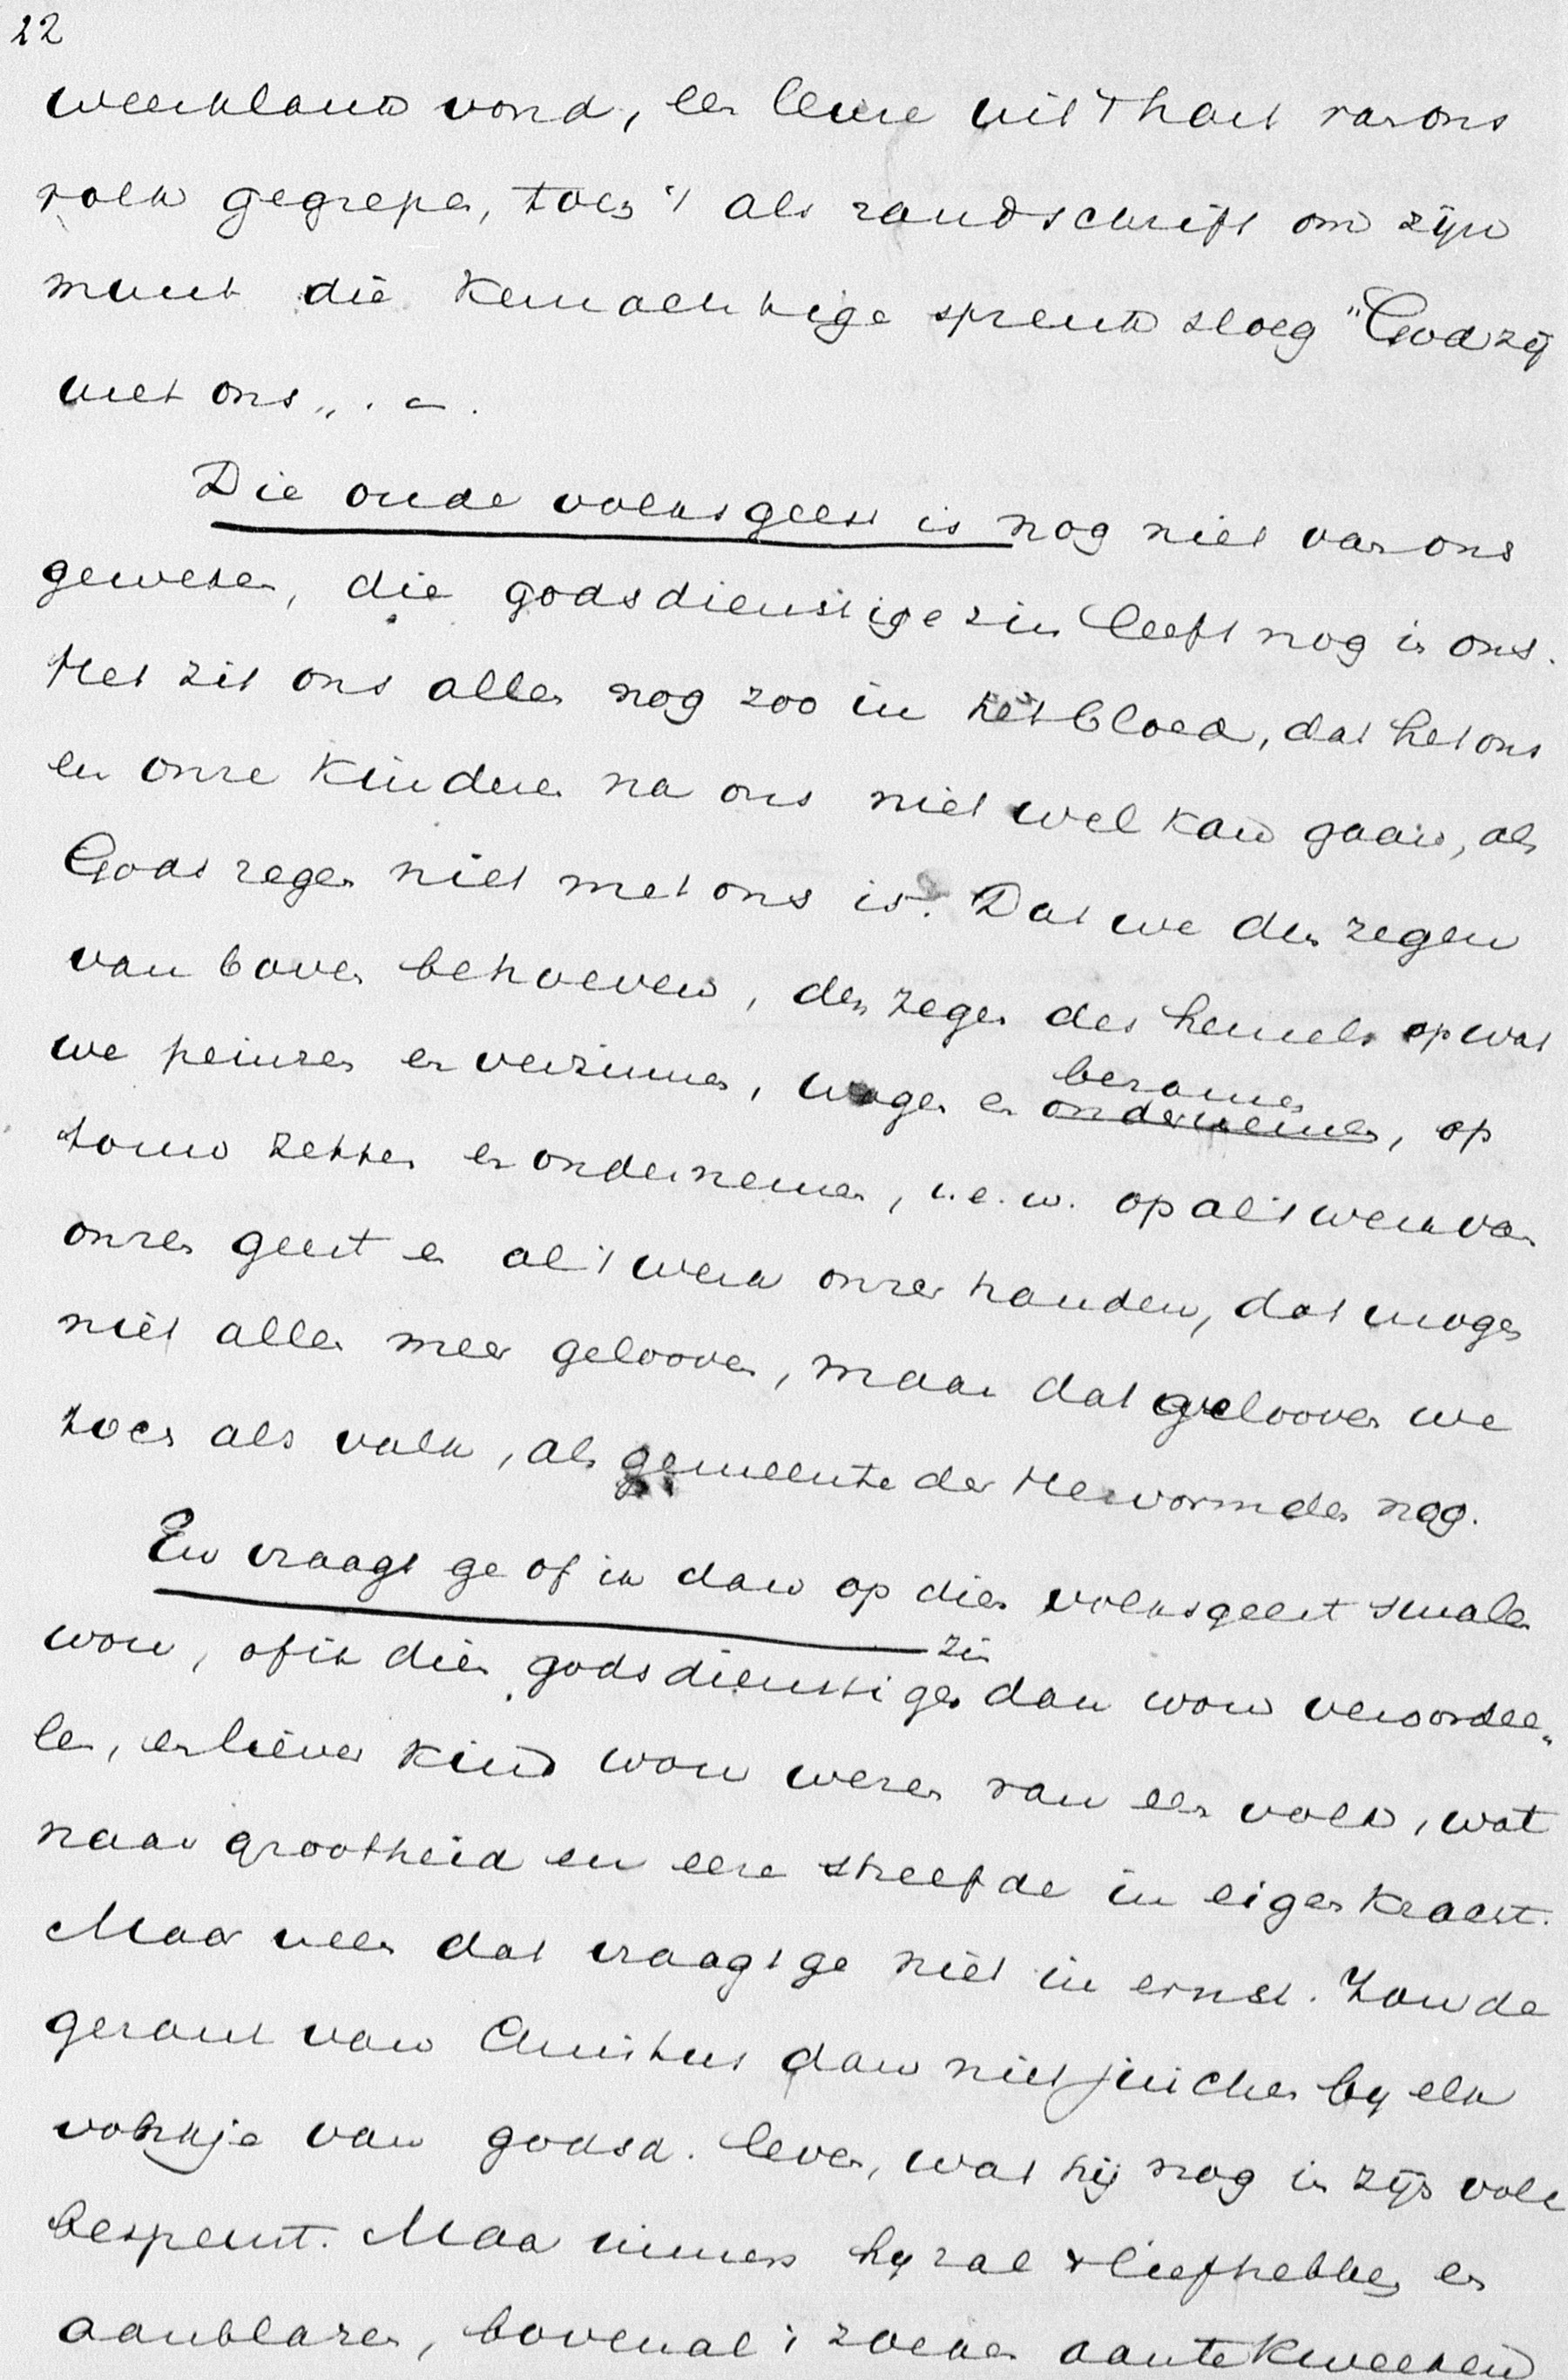 22
weerklank vond, een leuze uit 't hart van ons
volk gegrepen, toen 't als randschrift om zijn
munt die kernachtige spreuk sloeg "God zij
met ons„. –.
Die oude volksgeest is nog niet van ons
geweken, die godsdienstige zin leeft nog in ons.
Het zit ons allen nog zoo in het bloed, dat het ons
en onze kinderen na ons niet wel kan gaan, als
Gods zegen niet met ons is. Dat we den zegen
van boven behoeven, den zegen des hemels op wat
we peinzen en verzinnen, wagen en
beramen
ondernemen, op
touw zetten en ondernemen, i.e.w. op al 't werk van
onzen geest en al 't werk onzer handen, dat mogen
niet allen meer gelooven, maar dat gelooven we
toch als volk, als gemeente der Hervormden nog.
En vraagt ge of ik dan op dien volksgeest smalen
zin
wou, of ik dien godsdienstigen dan wou veroordee„
len, en liever kind wou wezen van een volk, wat
naar grootheid en eere streefde in eigen kracht.
Maar neen dat vraagt ge niet in ernst. Zou de
gezant van Christus dan niet juichen by elk
vonkje van godsd. leven, wat hij nog in zijn volk
bespeurt. Maar immers hy zal 't liefhebben en
aanblazen, bovenal 't zoeken aan te kweeken